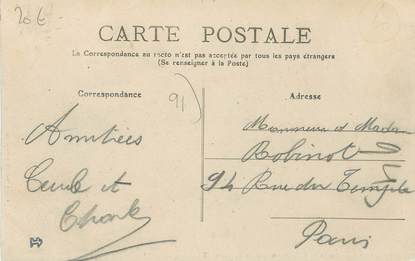 20E
CARTE POSTALE
La Correspondance au recto n'est pas acceptée par tous les pays étrangers
(Se renseigner à la Poste)
Correspondance
Adresse
91)
Amitiés
et
Monsieur et Madame
Robinot
94 Rue du Temple
Paris